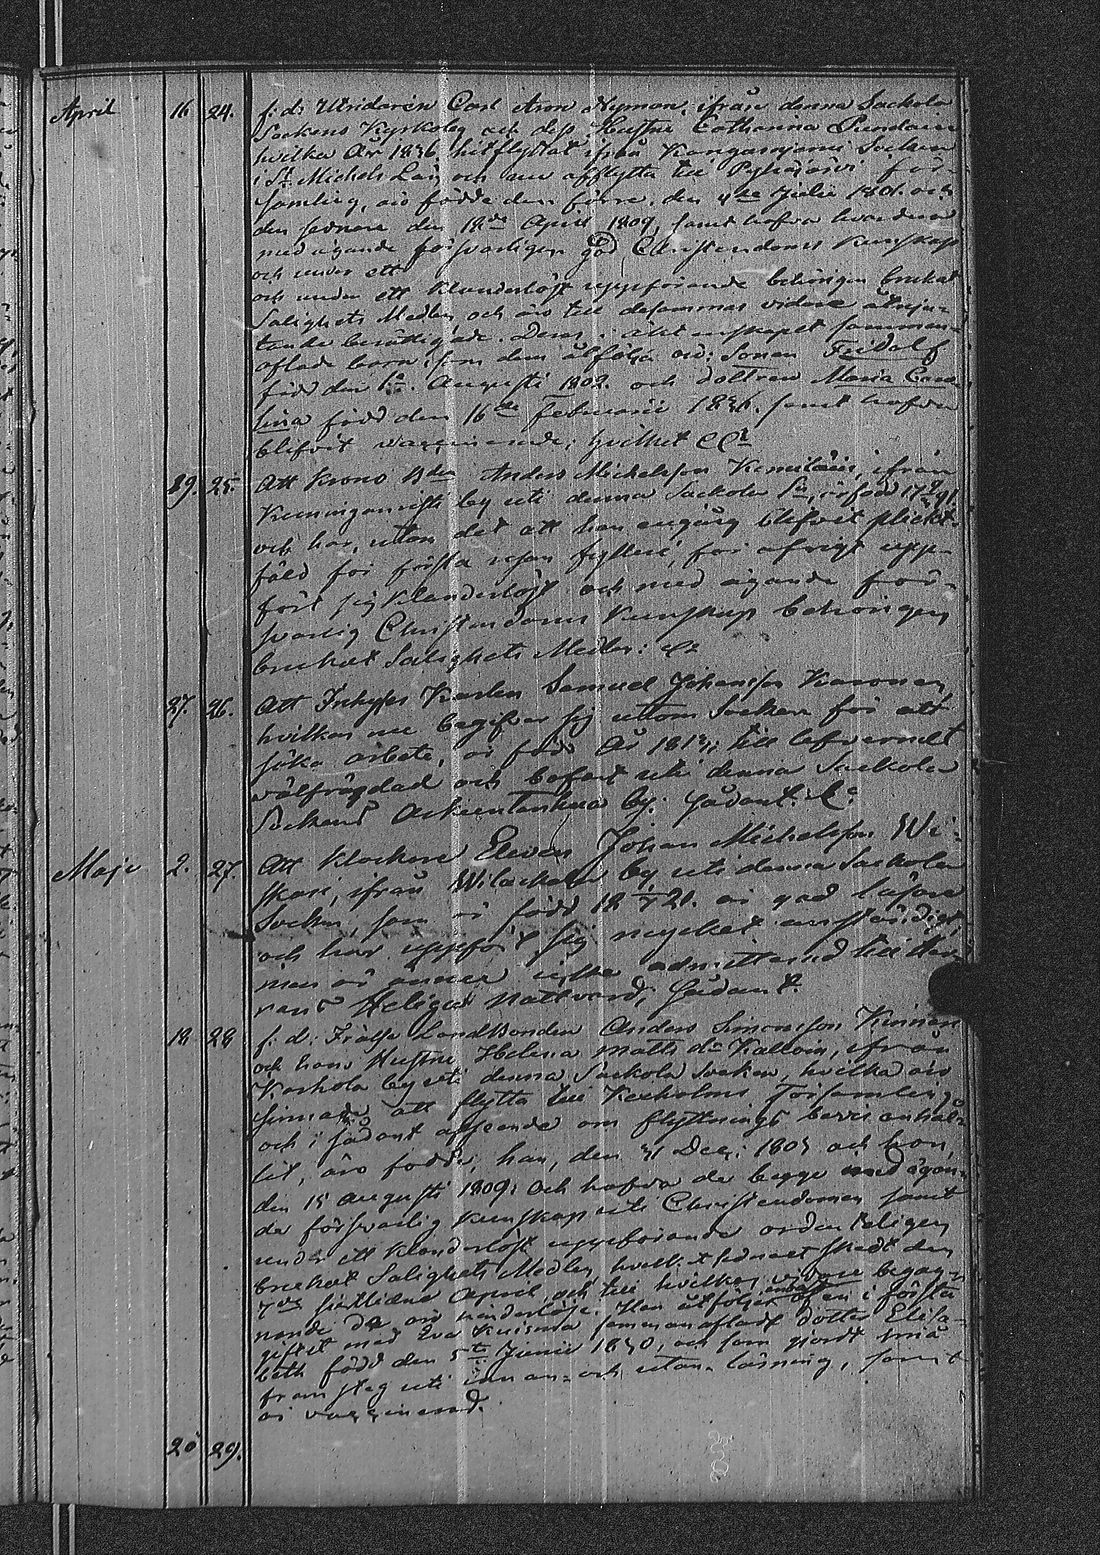 April 16 24. f: d: Utridaren Carl Aron Nyman, ifrån denna Sackola
Sockens Kyrkoby och dess Hustru Catharina
hvilka År 1836 hitflyttat ifrån Kangasniemi Socken
i S:t Michels Län och nu afflytta till Pyhäjärvi för-
samling, äro födde den förre den 4de Julii 1801. och
den sednare den 18de April 1809, samt hafva hvardera
med ägande försvarligen god Christendoms kunskap
och under ett
och under ett klanderlöst uppförande behörigen brukat
Salighets Medlen och äro till desammas vidare åtnju-
tande berättigade. Deras i äktenskapet samman-
aflade barn som dem åtfölja äro: Sonen Feidolf
född den Augusti och dottren Maria Caro-
lina född den 16de Februarii 1836. samt hafva
blifvit vaccinerade; hvilket
29. 25. Att Krono Bdn Anders Michelsson Kemiläin, ifrån
by uti denna Sackola Sn, är född
och har, utan det att han engång blifvit plickt-
fäld för första resan fylleri, för öfrigt upp-
fört sig klanderlöst och med ägande för-
svarlig Christendoms kunskap behörigen
brukat Salighets Medlen: &c
27. 26. Att Inhyses Karlen Samuel Johansson Karonen,
hvilken nu begifver sig utom Socken för att
söka arbete, är född År till lefvernet
välfrägdad och bofast uti denna Sackola
Sockens by. Sådant. &c:
Maji 2. 27. Att Klockare Eleven Johan Michelsson Wi-
skari, ifrån Wilackala by uti denna Sackola
Socken, som är född 18 21. är god läsare
och har uppfört sig mycket anständigt
men är ännu icke admitterad till Her-
rans Heliga Nattvard; Sådant.
18 28 f: d: Frälse Landbonden Anders Simonsson Kinnen
och hans Hustru Helena Matts dr Kalloin, ifrån
Karhola by uti denna Sackola Socken, hvilka äro
sinnade att flytta till Kexholms Församling
och i sådant afseende om flyttnings bevis anhål-
lit, äro födde, han, den 31 Dec: 1803 och hon,
den 15 Augusti 1809: och hafva de begge med ägan-
de försvarlig kunskap uti Christendomen samt
under ett klanderlöst uppförande ordenteligen
brukat Salighets Medlen, hvilket sednast skedt den
7de sistlidne April och till hvilkas vidare begag-
nande de äro hinderlöse. Han åtföljes af en i första
giftet med Eva sammanaflad dotter Elisa-
beth född den 5te Junii 1830. och som gjordt små
framsteg uti innan- och utan- läsning, samt
är vaccinerad.
20 29.